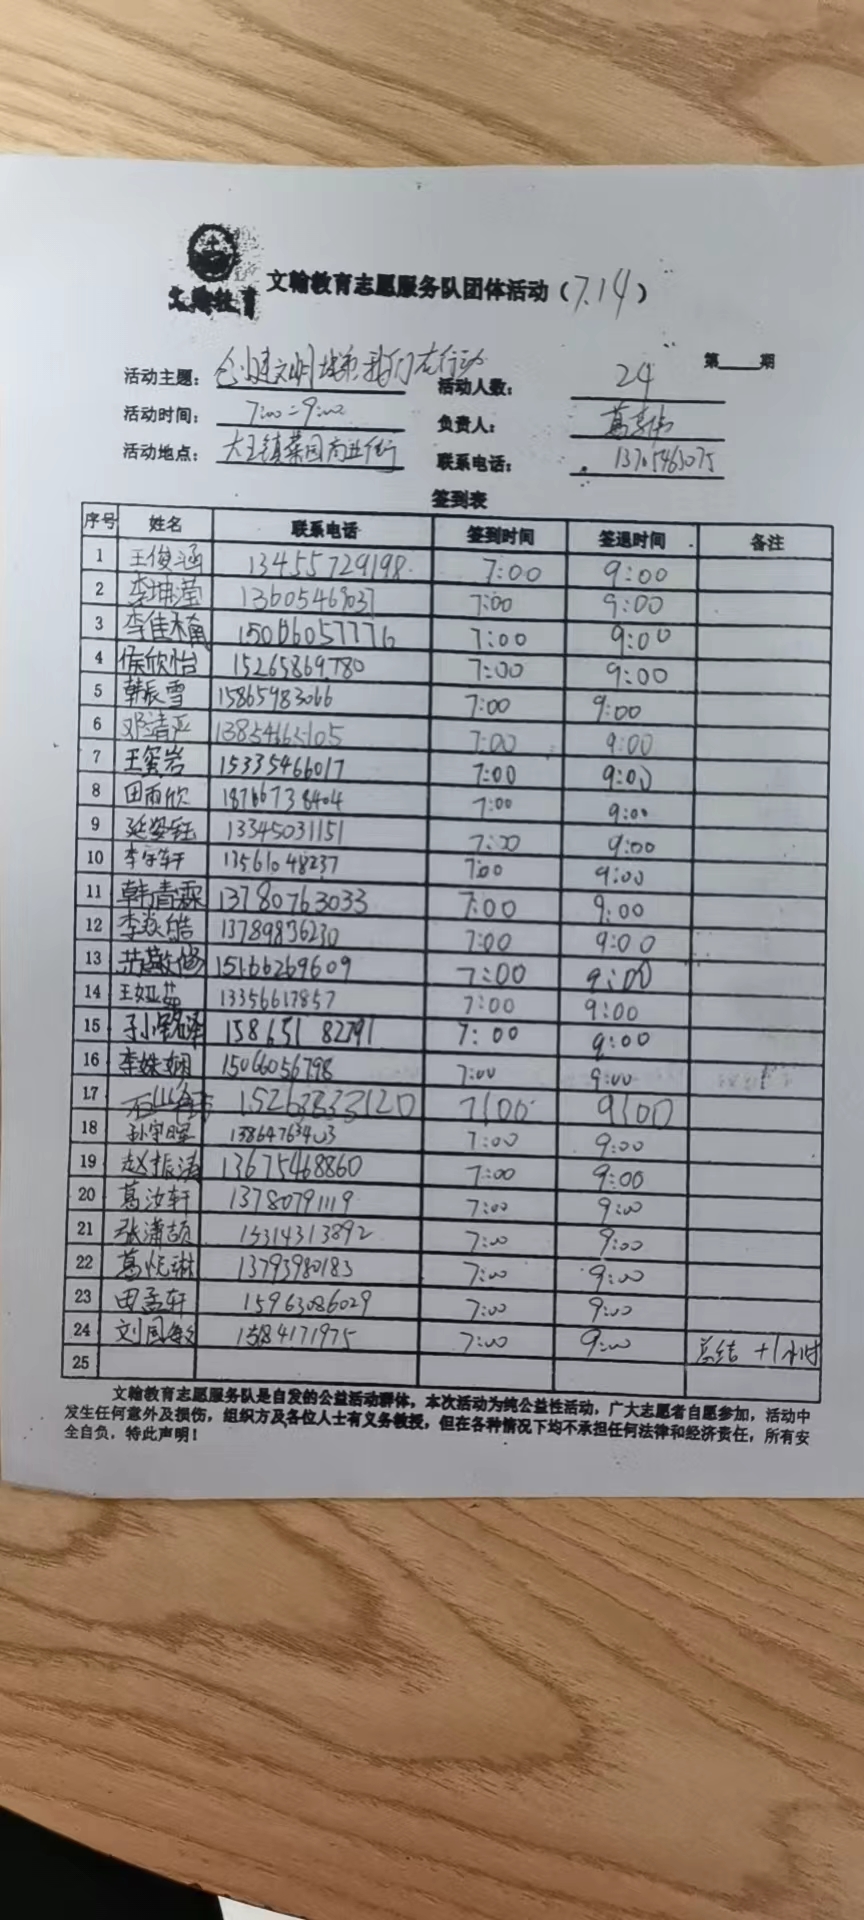 文翰教育
文翰教育志愿服务队团体活动（7.14）
第 期
活动主题：创建文明城市我们在行动 活动人数：24
活动时间：7:00-9:00 负责人：葛
活动地点：大王镇菜园商业街 联系电话：13705463075
签到表
序号 姓名 联系电话 签到时间 签退时间 备注
1 王俊涵 13455729198 7:00 9:00
2 李坤滢 13605469037 7:00 9:00
3 李佳楠 15006057776 7:00 9:00
4 侯欣怡 15265869780 7:00 9:00
5 韩辰雪 15865983066 7:00 9:00
6 邓清严 13854665105 7:00 9:00
7 王玺岩 15335466017 7:00 9:00
8 田雨欣 18766738404 7:00 9:00
9 延姿钰 13345031151 7:00 9:00
10 李宇轩 13561048237 7:00 9:00
11 韩清霖 13780763033 7:00 9:00
12 李焱皓 13789836230 7:00 9:00
13 15166269609 7:00 9:00
14 王娅茹 13356617857 7:00 9:00
15 孙铭泽 15865182791 7:00 9:00
16 李姝娴 15066056798 7:00 9:00
17 15263833120 7:00 9:00
18 孙宇晖 13864763403 7:00 9:00
19 赵振涛 13675468860 7:00 9:00
20 葛汝轩 13780791119 7:00 9:00
21 张潇颉 15314313892 7:00 9:00
22 葛悦琳 13793980183 7:00 9:00
23 田孟轩 15963086029 7:00 9:00
24 刘国敏 7:00 9:00 总结 +1小时
25
文翰教育志愿服务队是自发的公益活动群体，本次活动为纯公益性活动，广大志愿者自愿参加，活动中
发生任何意外及损伤，组织方及各位人士有义务救援，但在各种情况下均不承担任何法律和经济责任，所有安
全自负，特此声明！